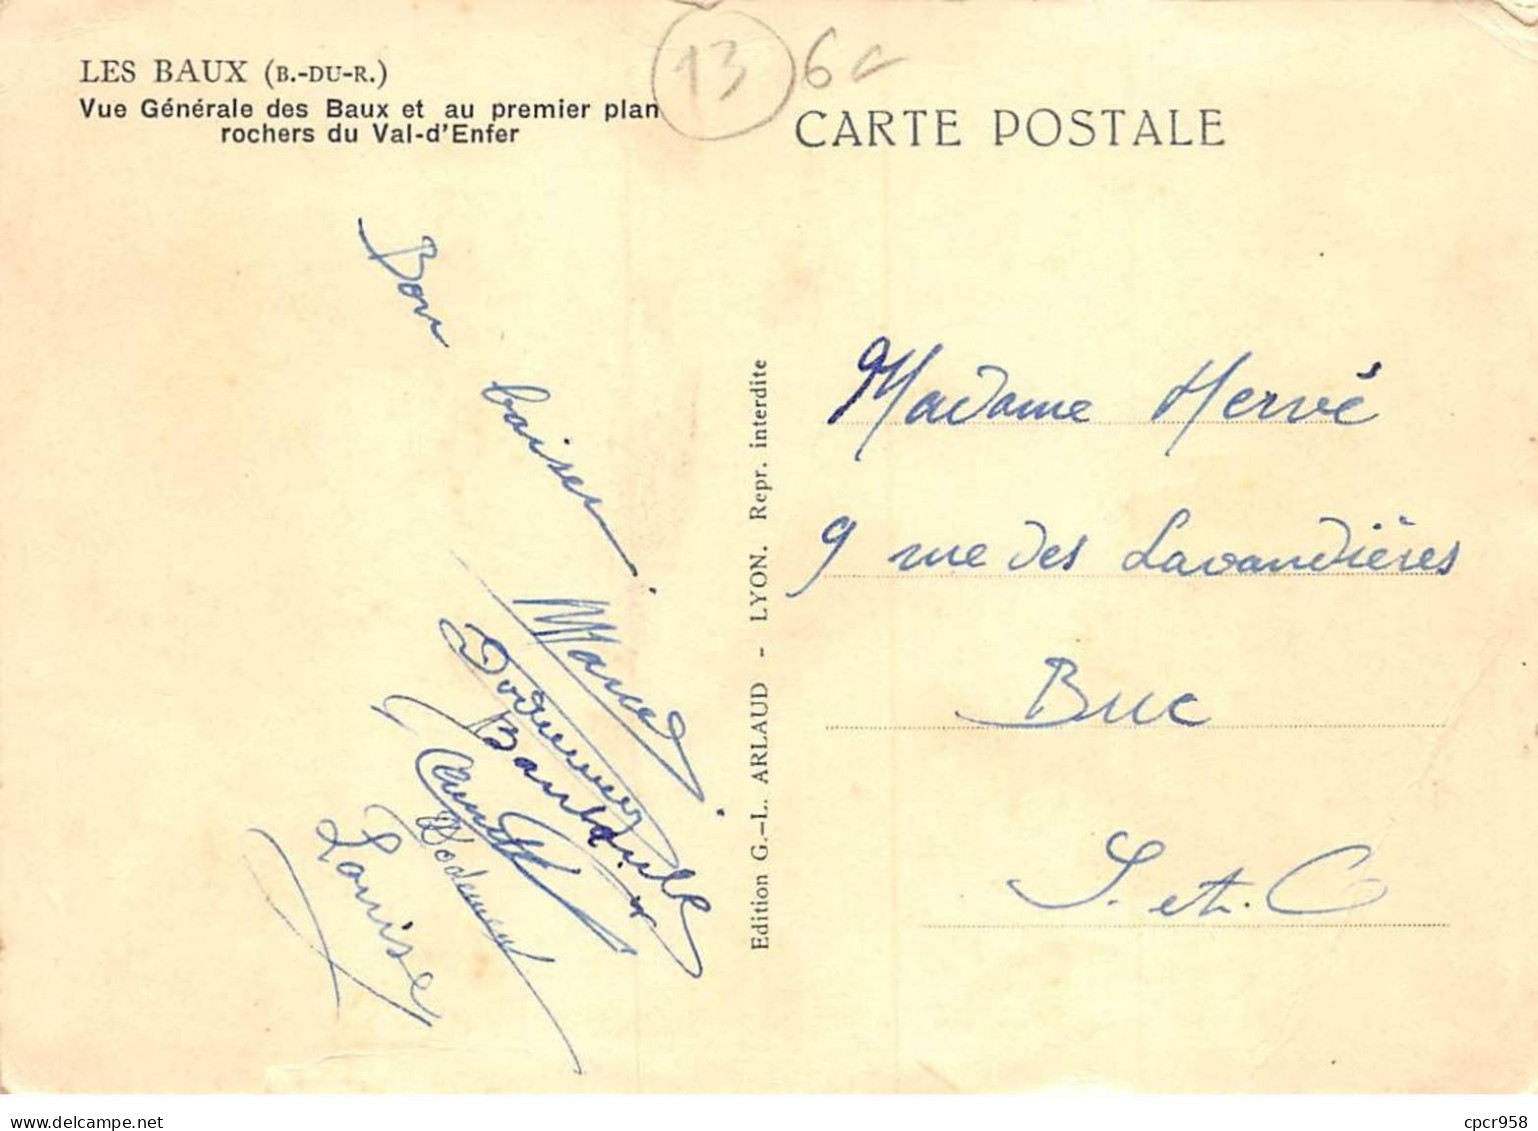 LES BAUX (B.-DU-R.)
Vue Générale des Baux et au premier plan
rochers du Val-d'Enfer
13
6
CARTE POSTALE
Bon
baiser
Marcel
Louise
Edition G.-L. ARLAUD - LYON. Repr. interdite
Madame Hervé
9 rue des Lavandières
Buc
S. et. O
cpcr958